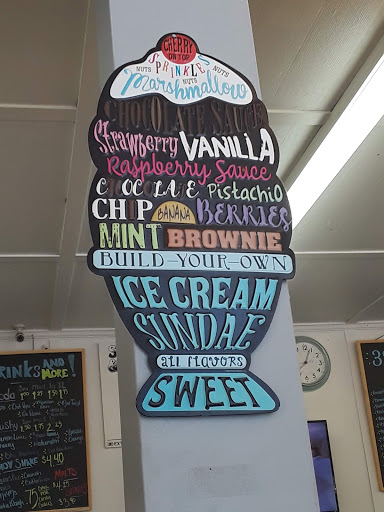 CHERRY
ON TOP
NUTS SPRINKLES NUTS
NUTS NUTS
Marshmallow
CHOCOLATE SAUCE
Strawberry VANILLA
Raspberry Sauce
CHOCOLATE Pistachio
CHIP BANANA BERRIES
MINT BROWNIE
BUILD-YOUR-OWN
ICE CREAM
SUNDAE
all flavors
SWEET
AND
MORE!
$4.40
MALTS
75